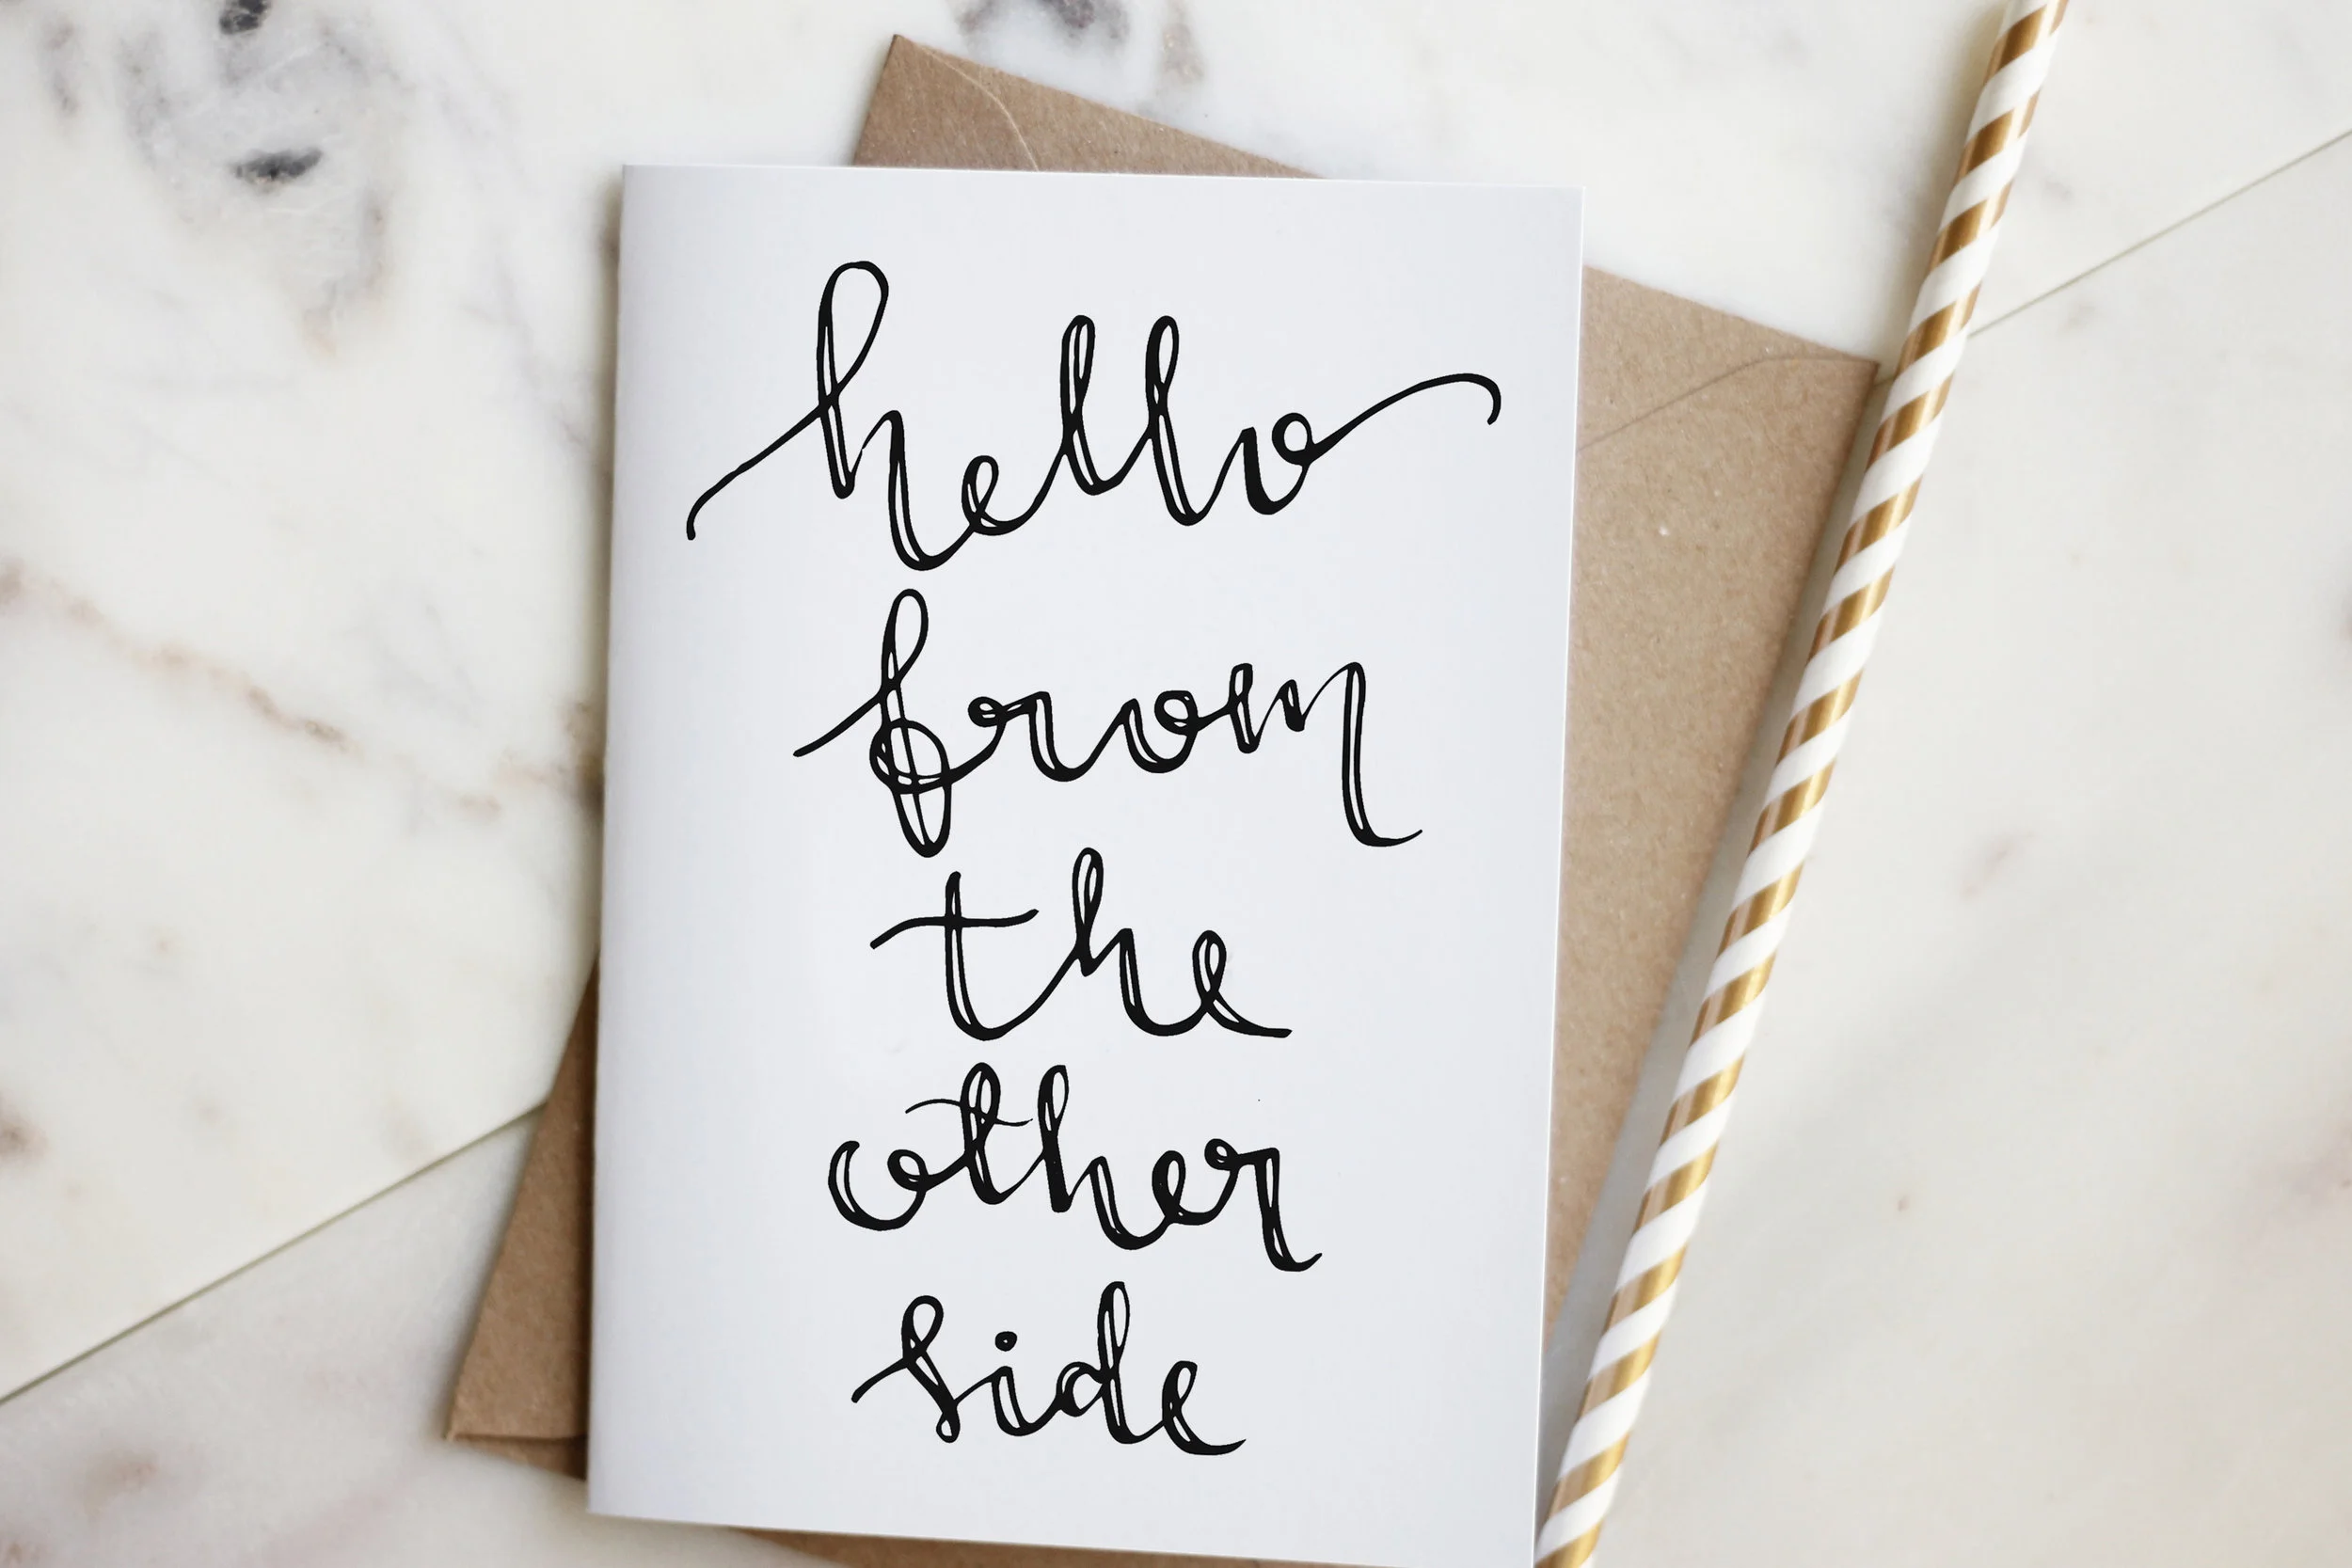 hello
from
the
other
side